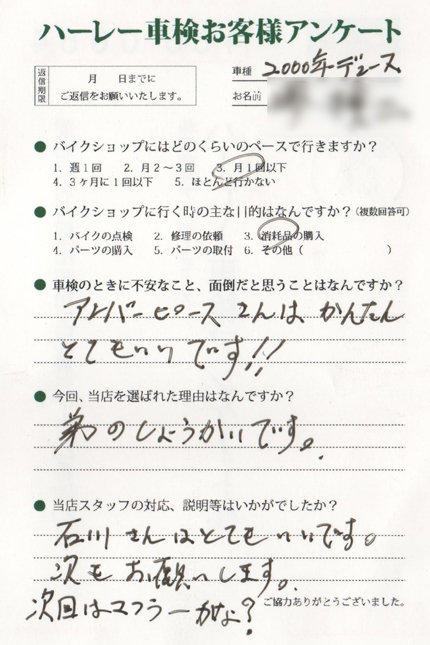 ハーレー車検お客様アンケート
返信期限
月 日までに
ご返信をお願いいたします。
車種 2000年デュース
お名前
● バイクショップにはどのくらいのペースで行きますか？
1. 週1回 2. 月2～3回 3. 月1回以下
4. 3ヶ月に1回以下 5. ほとんど行かない
● バイクショップに行く時の主な目的はなんですか？(複数回答可)
1. バイクの点検 2. 修理の依頼 3. 消耗品の購入
4. パーツの購入 5. パーツの取付 6. その他（ ）
● 車検のときに不安なこと、面倒だと思うことはなんですか？
アンバーピースさんは かんたん
とてもいいです!!
● 今回、当店を選ばれた理由はなんですか？
弟のしょうかいです。
● 当店スタッフの対応、説明等はいかがでしたか？
石川さんはとてもいいです。
次もお願いします。
次回はマフラーかな？
ご協力ありがとうございました。